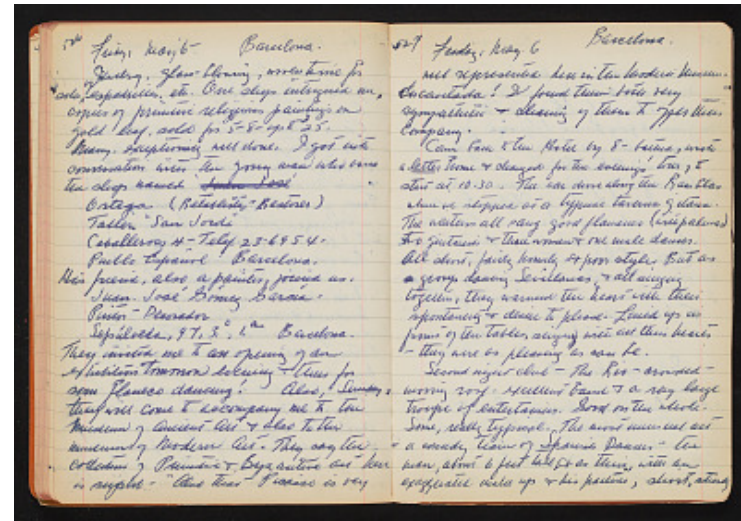 Friday, May 6 Barcelona.
glass-blowing, for
etc. One shop intrigued me,
copies of primitive religious paintings on
gold leaf, sold for 5-8- up to 25.
Many exceptionally well done. I got into
conversation with the young man who owns
the shop named
Ortega
Taller "San Jordi"
Caballeros 4 - Telef 23-6954.
Pueblo Español Barcelona.
His friend, also a painter, joined us.
Juan José Gomez Garcia.
Pintor - Decorador
Sepulveda, 97, 3°, 1ª Barcelona.
They invited me to an opening of an
exhibition tomorrow evening - then for
some dancing! Also, Sunday,
they will come to accompany me to the
Museum of Ancient Art & also to the
museum of Modern Art. They say the
collection of Primitive & Byzantine art here
is superb - and that Picasso is very
529 Friday, May 6 Barcelona.
well represented here in the Modern Museum.
Encantada! I found them both very
sympathetic & of them to offer their
company.
Came back to the Hotel by 8 - wrote
a letter home & changed for the evening's tour, to
start at 10-30. The car drove along the Ramblas
where we stopped at a gypsy
The all sang good flamenco
two guitarists & three women & one male dancer.
All short, fairly homely & poor style. But as
a group dancing Sevillanas, & all singing
together, they warmed the heart with their
spontaneity & desire to please. Lined up in
front of the tables, singing with all their hearts
- they were as pleasing as can be.
Second night club - The Rio - crowded -
moving roof - excellent band & a very large
troupe of entertainers. Good on the whole.
Some, really typical. The most unusual act
a comedy team of Spanish Dancers - the
man, about 6 feet tall & as thin, with an
exaggerated make up & his partner, short,